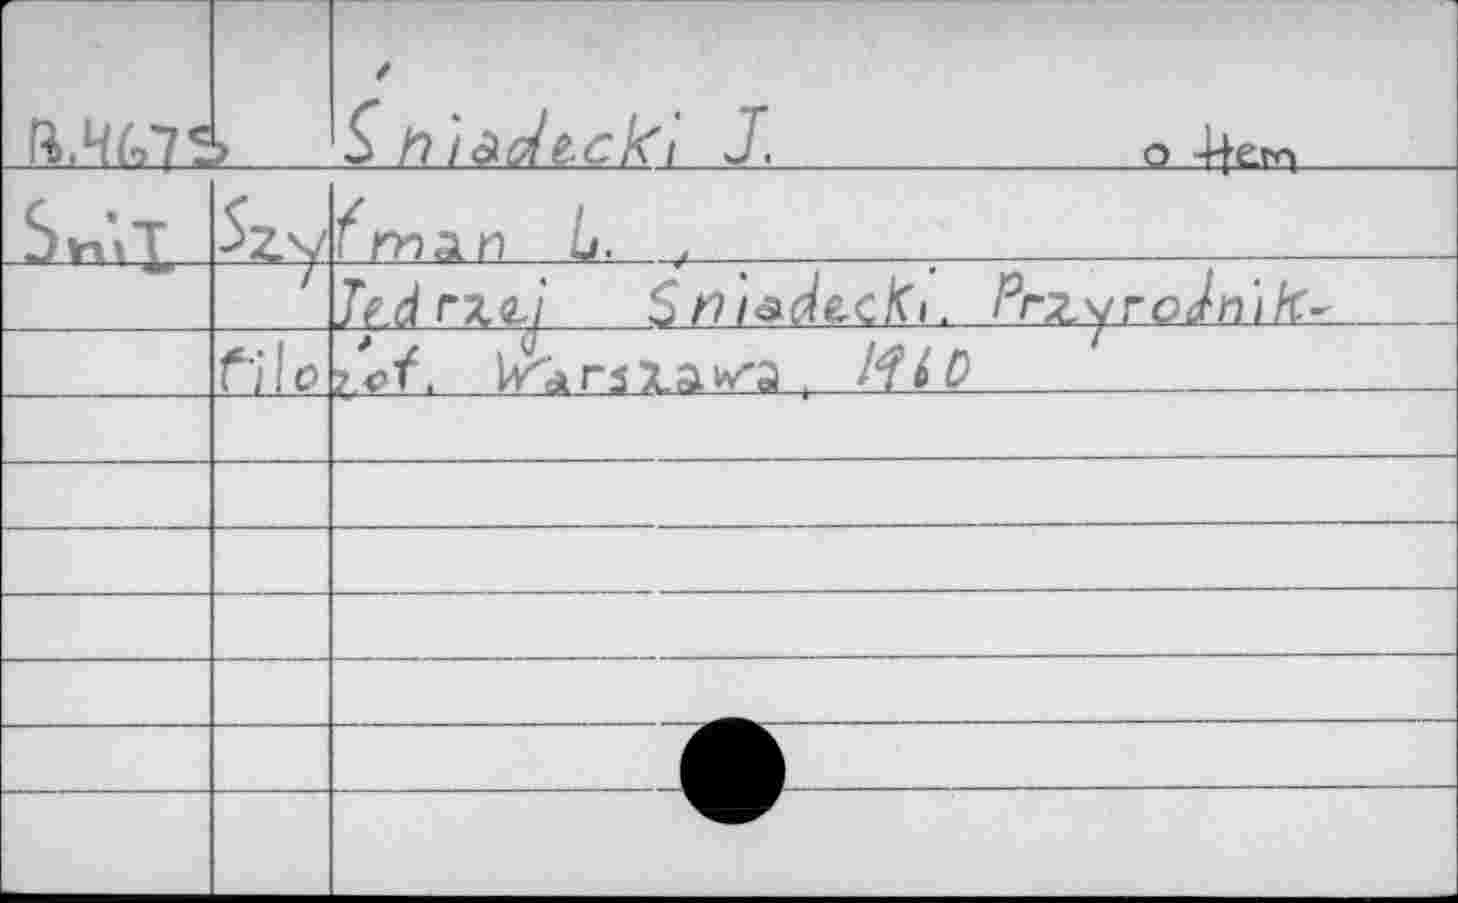 B.4675 Śniadecki J. o Hem
SniI Szyfman L.,
Jedrzej Śniadecki. Przyrodnik-
filozóf. Warszawa, 1960